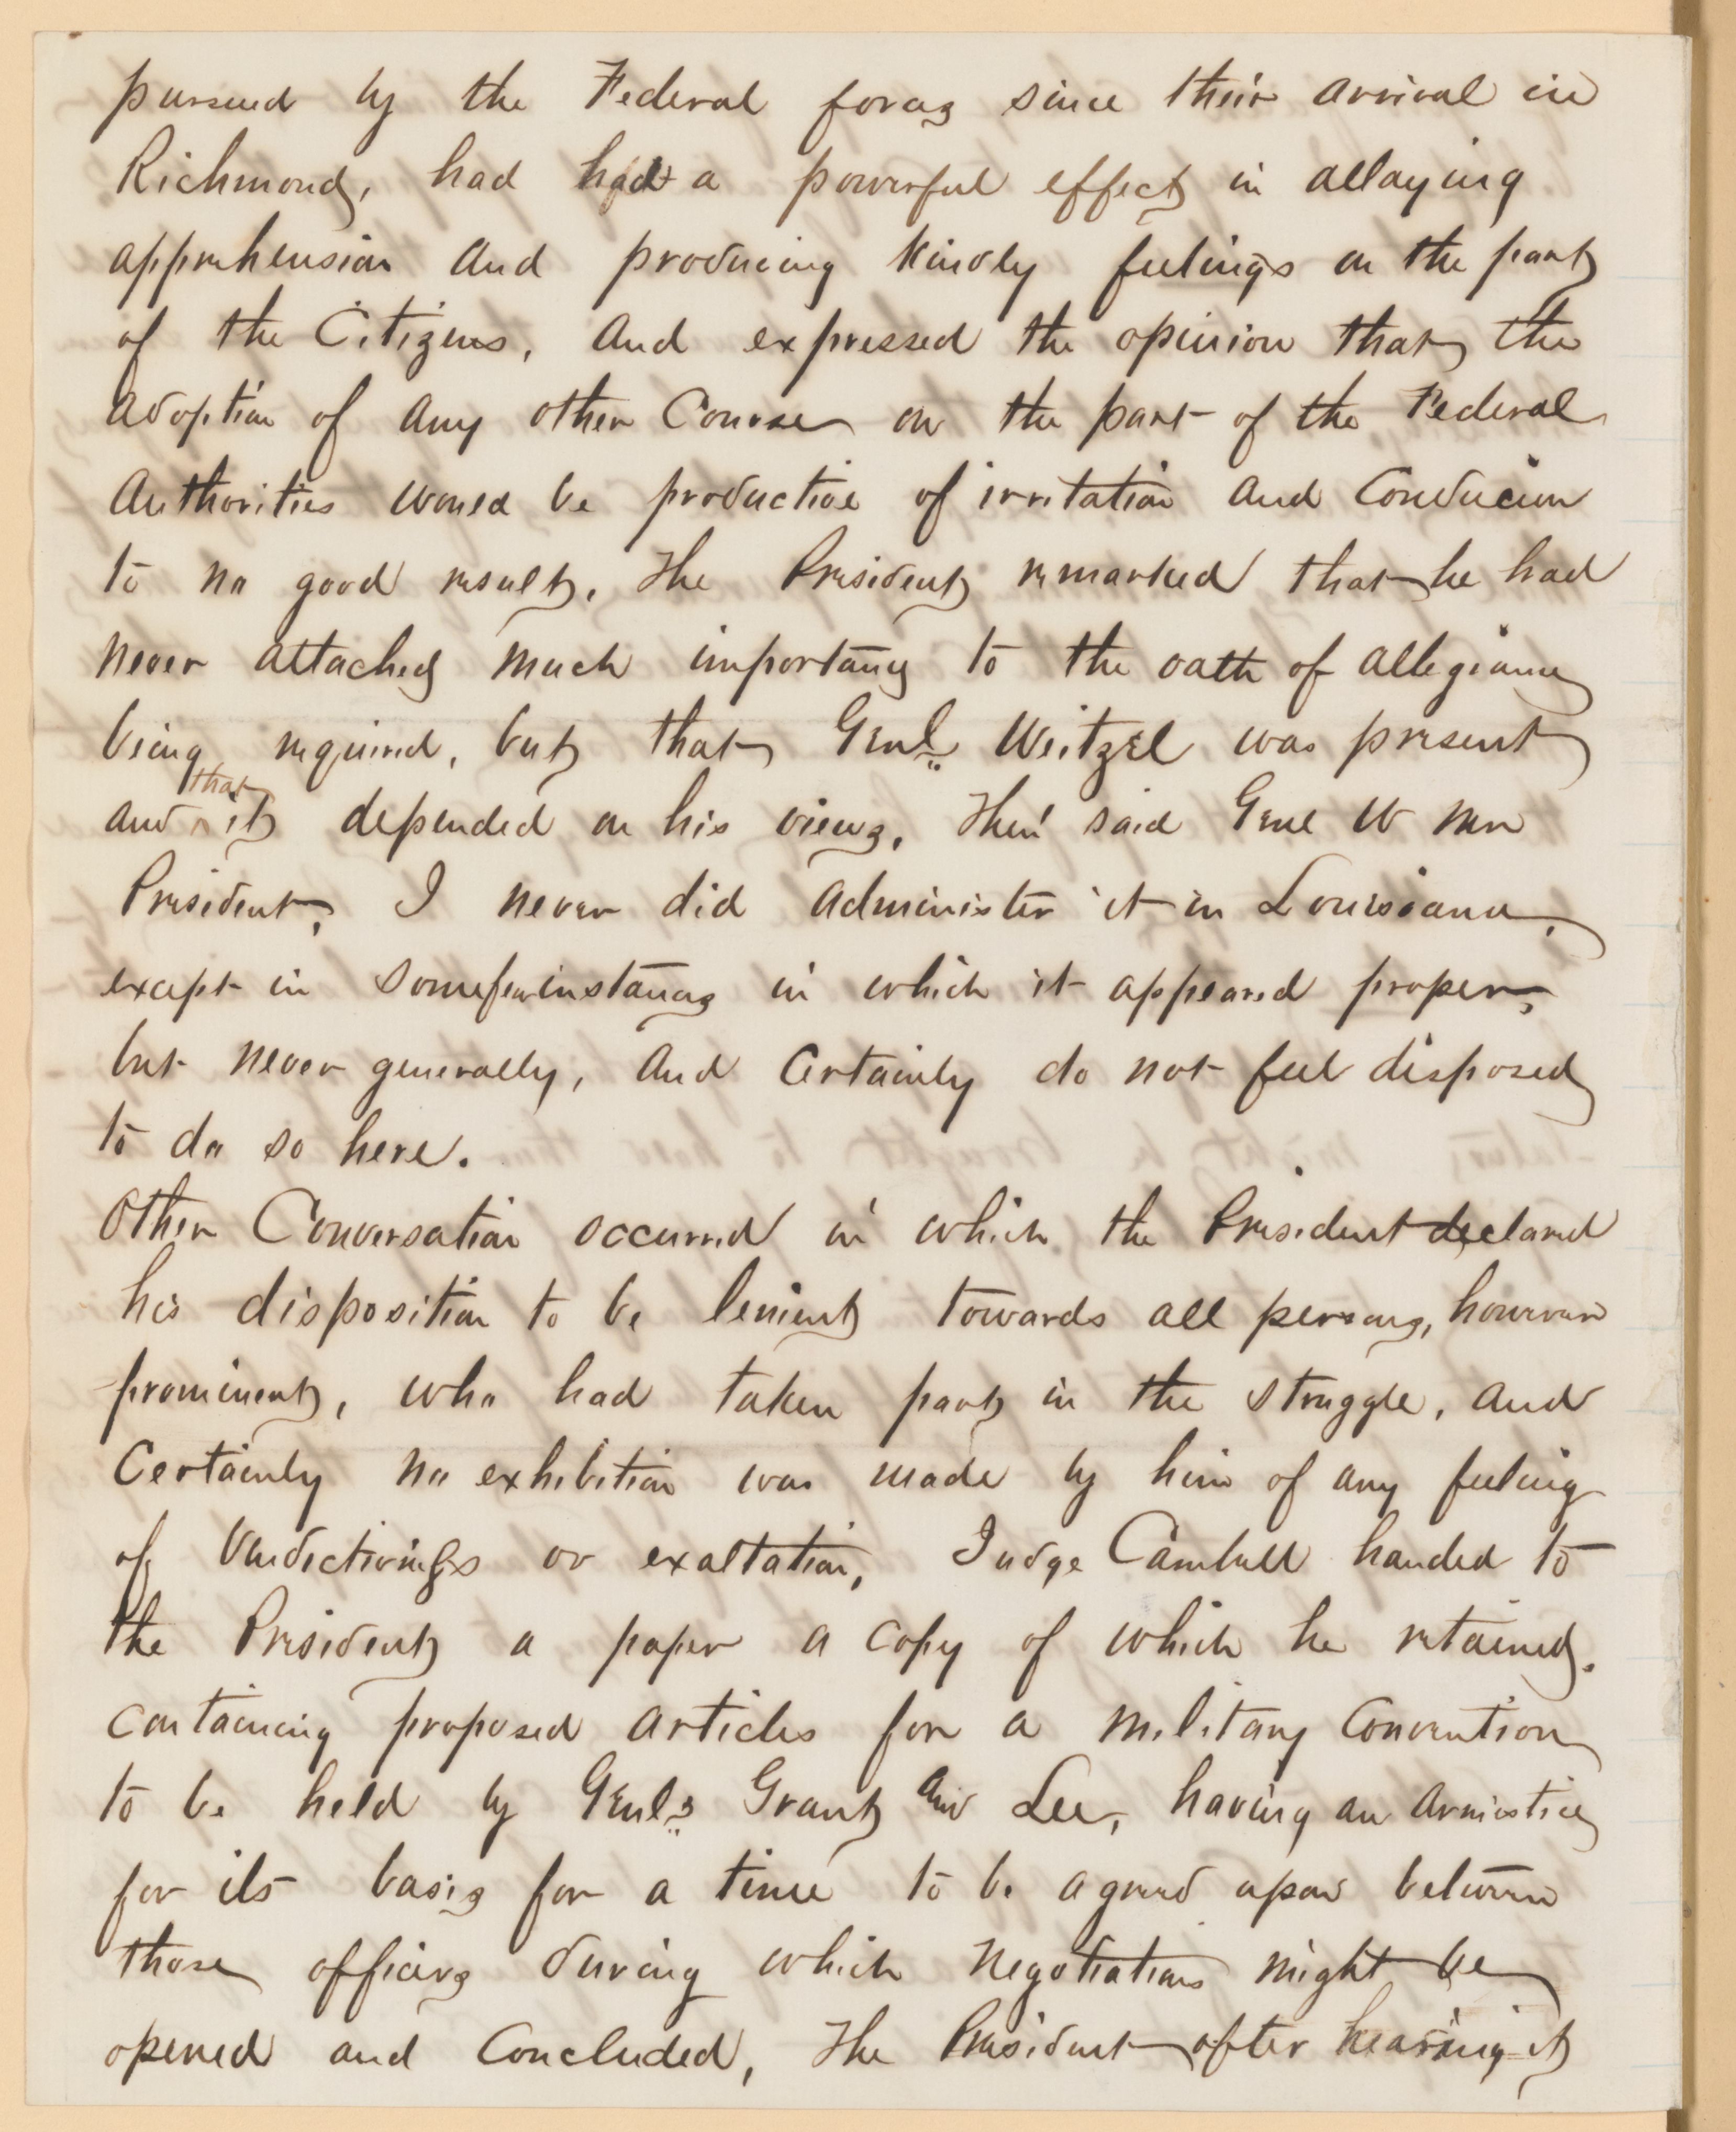 pursued by the Federal forces since their arrival in
Richmond, had had a powerful effect in allaying
apprehension and producing kindly feelings on the part
of the Citizens, and expressed the opinion that the
adoption of any other Course on the part of the Federal
Authorities would be productive of irritation and Conducive
to no good result. The President remarked that he had
never attached much importance to the oath of allegiance
being required, but that Genl. Weitzel was present
and that it depended on his views. Then said Genl W Mr
President, I never did administer it in Louisiana,
except in some few instances in which it appeared proper,
but never generally, and Certainly do not feel disposed
to do so here.
Other Conversation occurred in which the President declared
his disposition to be lenient towards all persons, however
prominent, who had taken part in the struggle, and
Certainly no exhibition was made by him of any feeling
of Vindictiveness or exaltation, Judge Cambell handed to
the President a paper a copy of which he retained,
containing proposed articles for a military Convention
to be held by Genls. Grant and Lee, having an Armistice
for its basis for a time to be agreed upon between
those officers during which Negotiations might be
opened and Concluded, The President after hearing it